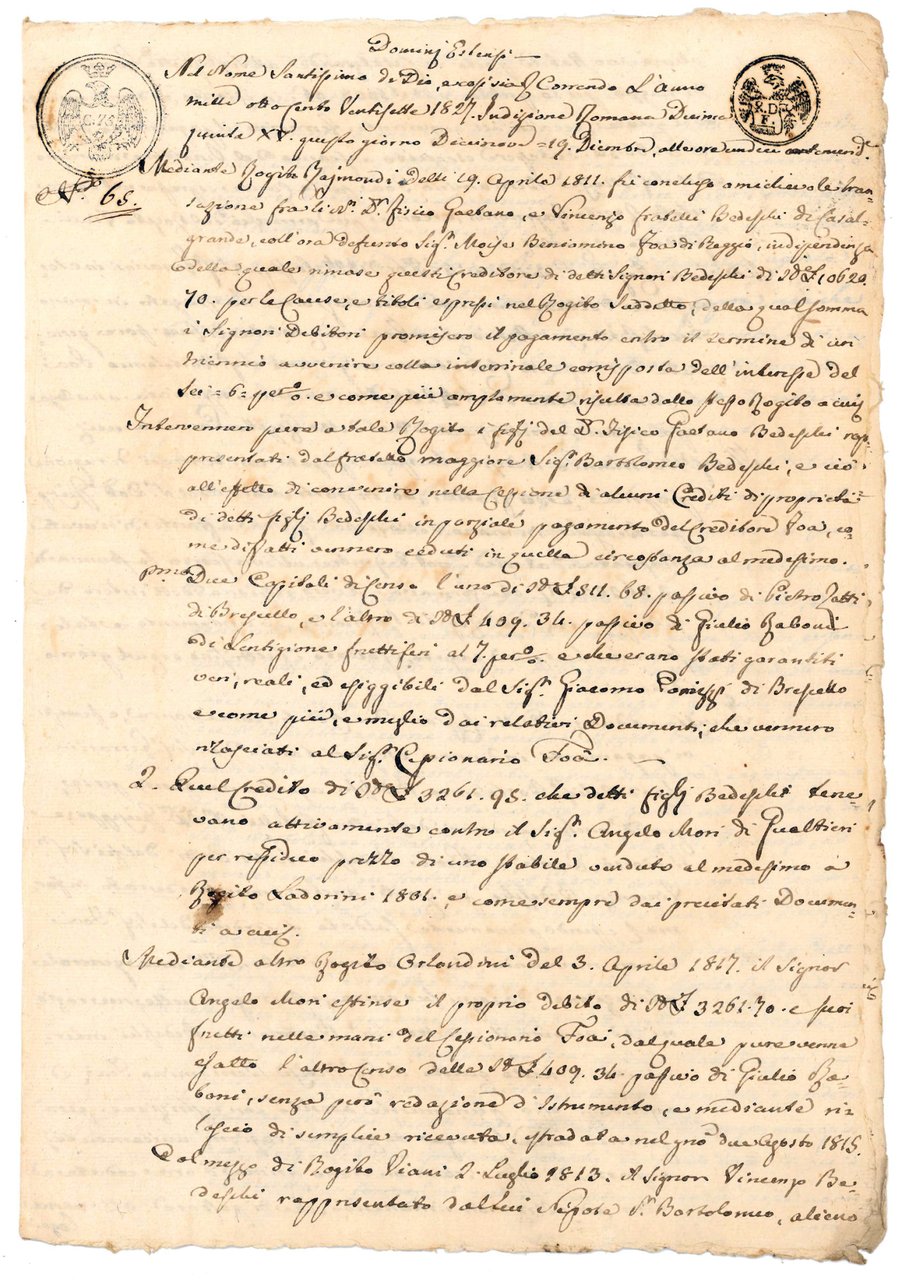 Dominj Estensi
C. 75
R.D.
F.
Nel Nome Santissimo di Dio, e così sia Correndo L'anno
mille otto cento Ventisette 1827. Indizione Romana Decima
quinta XV. questo giorno Diecinove = 19. Dicembre, alle ore undici antemerid.
N.° 65.
Mediante Rogito Rajmondi Delli 19. Aprile 1811. fù concluso amichevole tran-
sazione fra li SS.ri Dr. Fisico Gaetano, e Vincenzo fratelli Bedeschi di Casal-
grande, coll'ora defunto Sig.r Moise Beniamino Foa di Reggio, in dipendenza
della quale rimase questi Creditore di detti Signori Bedeschi di 10620.
70. per le Cause, e titoli espressi nel Rogito Suddetto, della qual somma
i Signori Debitori promisero il pagamento entro il termine di un
triennio avvenire colla interinale corrisposta dell'interesse del
Sei = 6 = per %. e come più amplamente risulta dallo stesso Rogito a cui
Intervennero pure a tale Rogito i figlj del Dr. Fisico Gaetano Bedeschi rap-
presentati dal fratello maggiore Sig.r Bartolomeo Bedeschi, e ciò
all'effetto di convenire nella Cessione di alcuni Crediti di proprietà
di detti figlj Bedeschi in parziale pagamento del Creditore Foa, co-
me di fatti vennero ceduti in quella circostanza al medesimo.
p.mo Due Capitali di Censo l'uno di 811. 68. passivo di Pietro Zatti
di Brescello, e l'altro di 409. 34. passivo di Giulio Raboni
di Lentigione fruttiferi al 7. per %. e che erano stati garantiti
veri, reali, ed esiggibili dal Sig.r Giacomo di Brescello
e come più, e meglio dai relativi Documenti, che vennero
rilasciati al Sig.r Cessionario Foà.
2. Quel Credito di 3261. 95. che detti figlj Bedeschi tene-
vano attivamente contro il Sig.r Angelo Mori di Gualtieri
per residuo prezzo di uno stabile venduto al medesimo a
Rogito Ladorini 1801. e come sempre dai precitati Documen-
ti a cui.
Mediante altro Rogito Orlandini del 3. Aprile 1817. il Signor
Angelo Mori estinse il proprio debito di 3261.70. e suoi
frutti nelle mani del Cessionario Foà, dal quale pure venne
esatto l'altro Censo delle 409. 34. passivo di Giulio Ra-
boni, senza però redazione d'Istrumento, e mediante ri-
lascio di semplice ricevuta, stradata nel gno due Agosto 1815.
Col mezzo di Rogito Viani 2. Luglio 1813. il Signor Vincenzo Be-
deschi rappresentato dal lui Nipote Sr. Bartolomeo, alienò